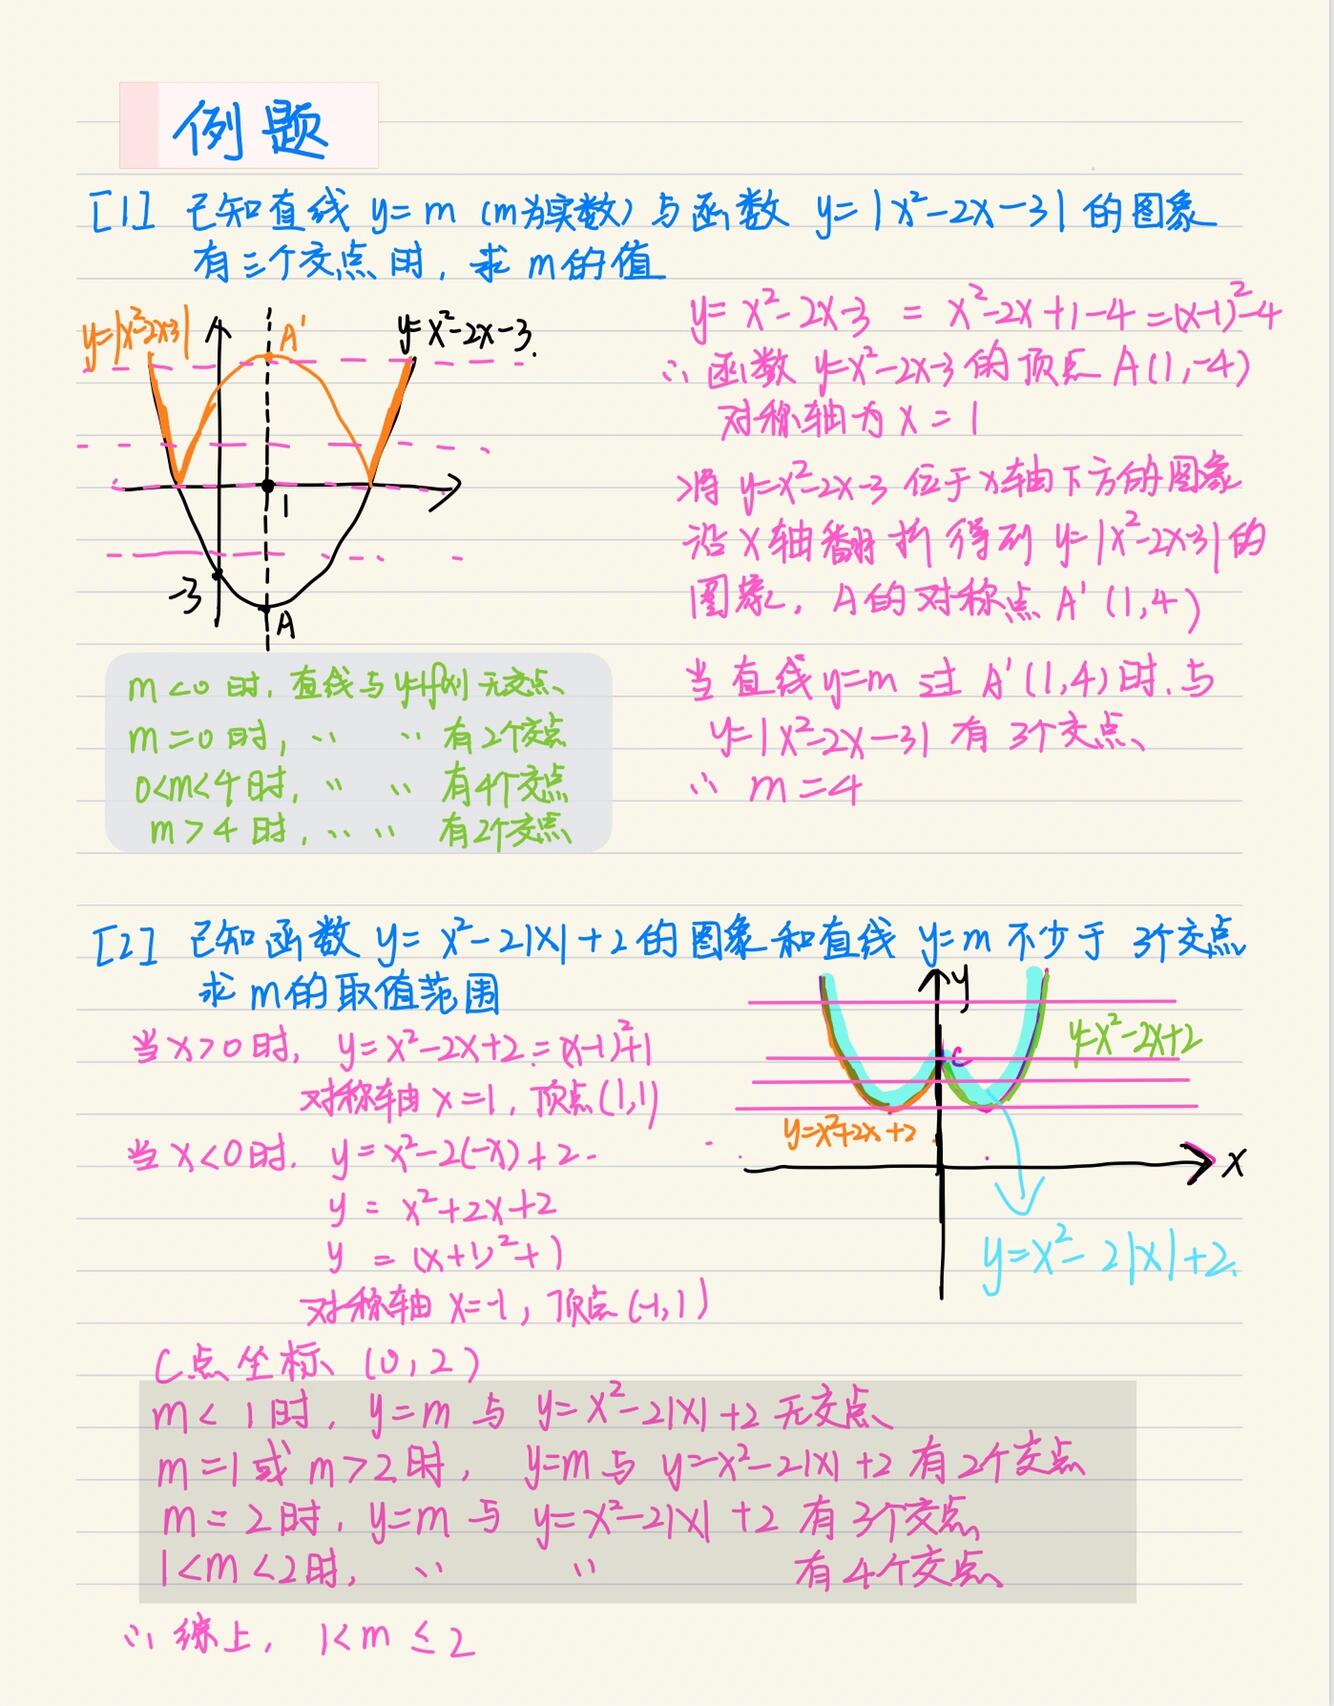 例题
[1] 已知直线 y=m (m为实数) 与函数 y=|x²-2x-3| 的图象
有三个交点时, 求 m的值
y=|x²-2x-3|
A'
y=x²-2x-3.
1
-3
A
y= x²-2x-3 = x²-2x+1-4=(x-1)²-4
∴ 函数 y=x²-2x-3 的顶点 A(1,-4)
对称轴为 x=1
>将 y=x²-2x-3 位于x轴下方的图象
沿 x轴翻折 得到 y=|x²-2x-3| 的
图象, A的对称点 A'(1,4)
当直线 y=m 过 A'(1,4)时,与
y=|x²-2x-3| 有 3个交点、
∴ m=4
m<0 时, 直线与 y=|f(x)| 无交点、
m=0 时, 〃 〃 有2个交点
0<m<4时, 〃 〃 有4个交点
m>4 时, 〃 〃 有2个交点
[2] 已知函数 y= x²-2|x|+2的图象和直线 y=m 不少于 3个交点
求 m的取值范围
当x>0时, y=x²-2x+2=(x-1)²+1
对称轴 x=1, 顶点(1,1)
当 x<0时. y=x²-2(-x)+2.
y = x²+2x+2
y = (x+1)²+1
对称轴 x=-1, 顶点(-1,1)
y
C
y=x²-2x+2
y=x²+2x+2
x
y=x²-2|x|+2.
C点坐标 (0,2)
m<1时, y=m 与 y=x²-2|x|+2 无交点
m=1或 m>2时, y=m与 y=x²-2|x|+2 有2个交点
m=2时, y=m 与 y=x²-2|x|+2 有3个交点
1<m<2时, 〃 〃 有4个交点
∴ 综上, 1<m≤2